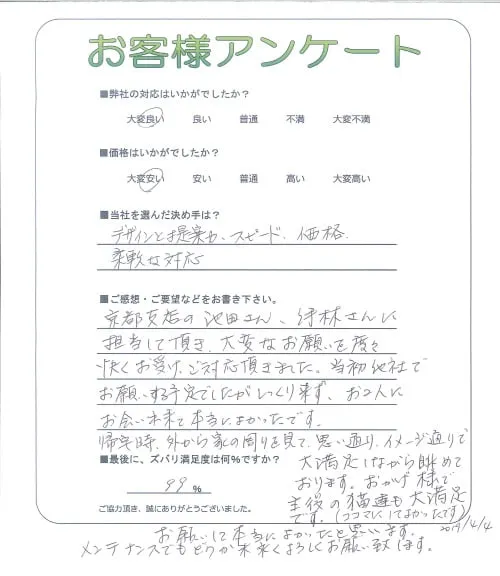 お客様アンケート
■弊社の対応はいかがでしたか？
大変良い 良い 普通 不満 大変不満
■価格はいかがでしたか？
大変安い 安い 普通 高い 大変高い
■当社を選んだ決め手は？
デザインと提案力、スピード、価格
柔軟な対応
■ご感想・ご要望などをお書き下さい。
京都支店の池田さん、竹林さんに
担当して頂き、大変なお願いを度々
快くお受け、ご対応頂きました。当初他社で
お願いする予定でしたがしっくり来ず、お2人に
お会い出来て本当によかったです。
帰宅時、外から家の周りを見て、思い通り、イメージ通りで
大満足しながら眺めて
おります。おかげ様で
主役の猫達も大満足
です。(ココマにしてよかったです)
■最後に、ズバリ満足度は何%ですか？
99 %
ご協力頂き、誠にありがとうございました。
2019/4/4
お願いして本当によかったと思います。
メンテナンスでもどうか末永くよろしくお願い致します。